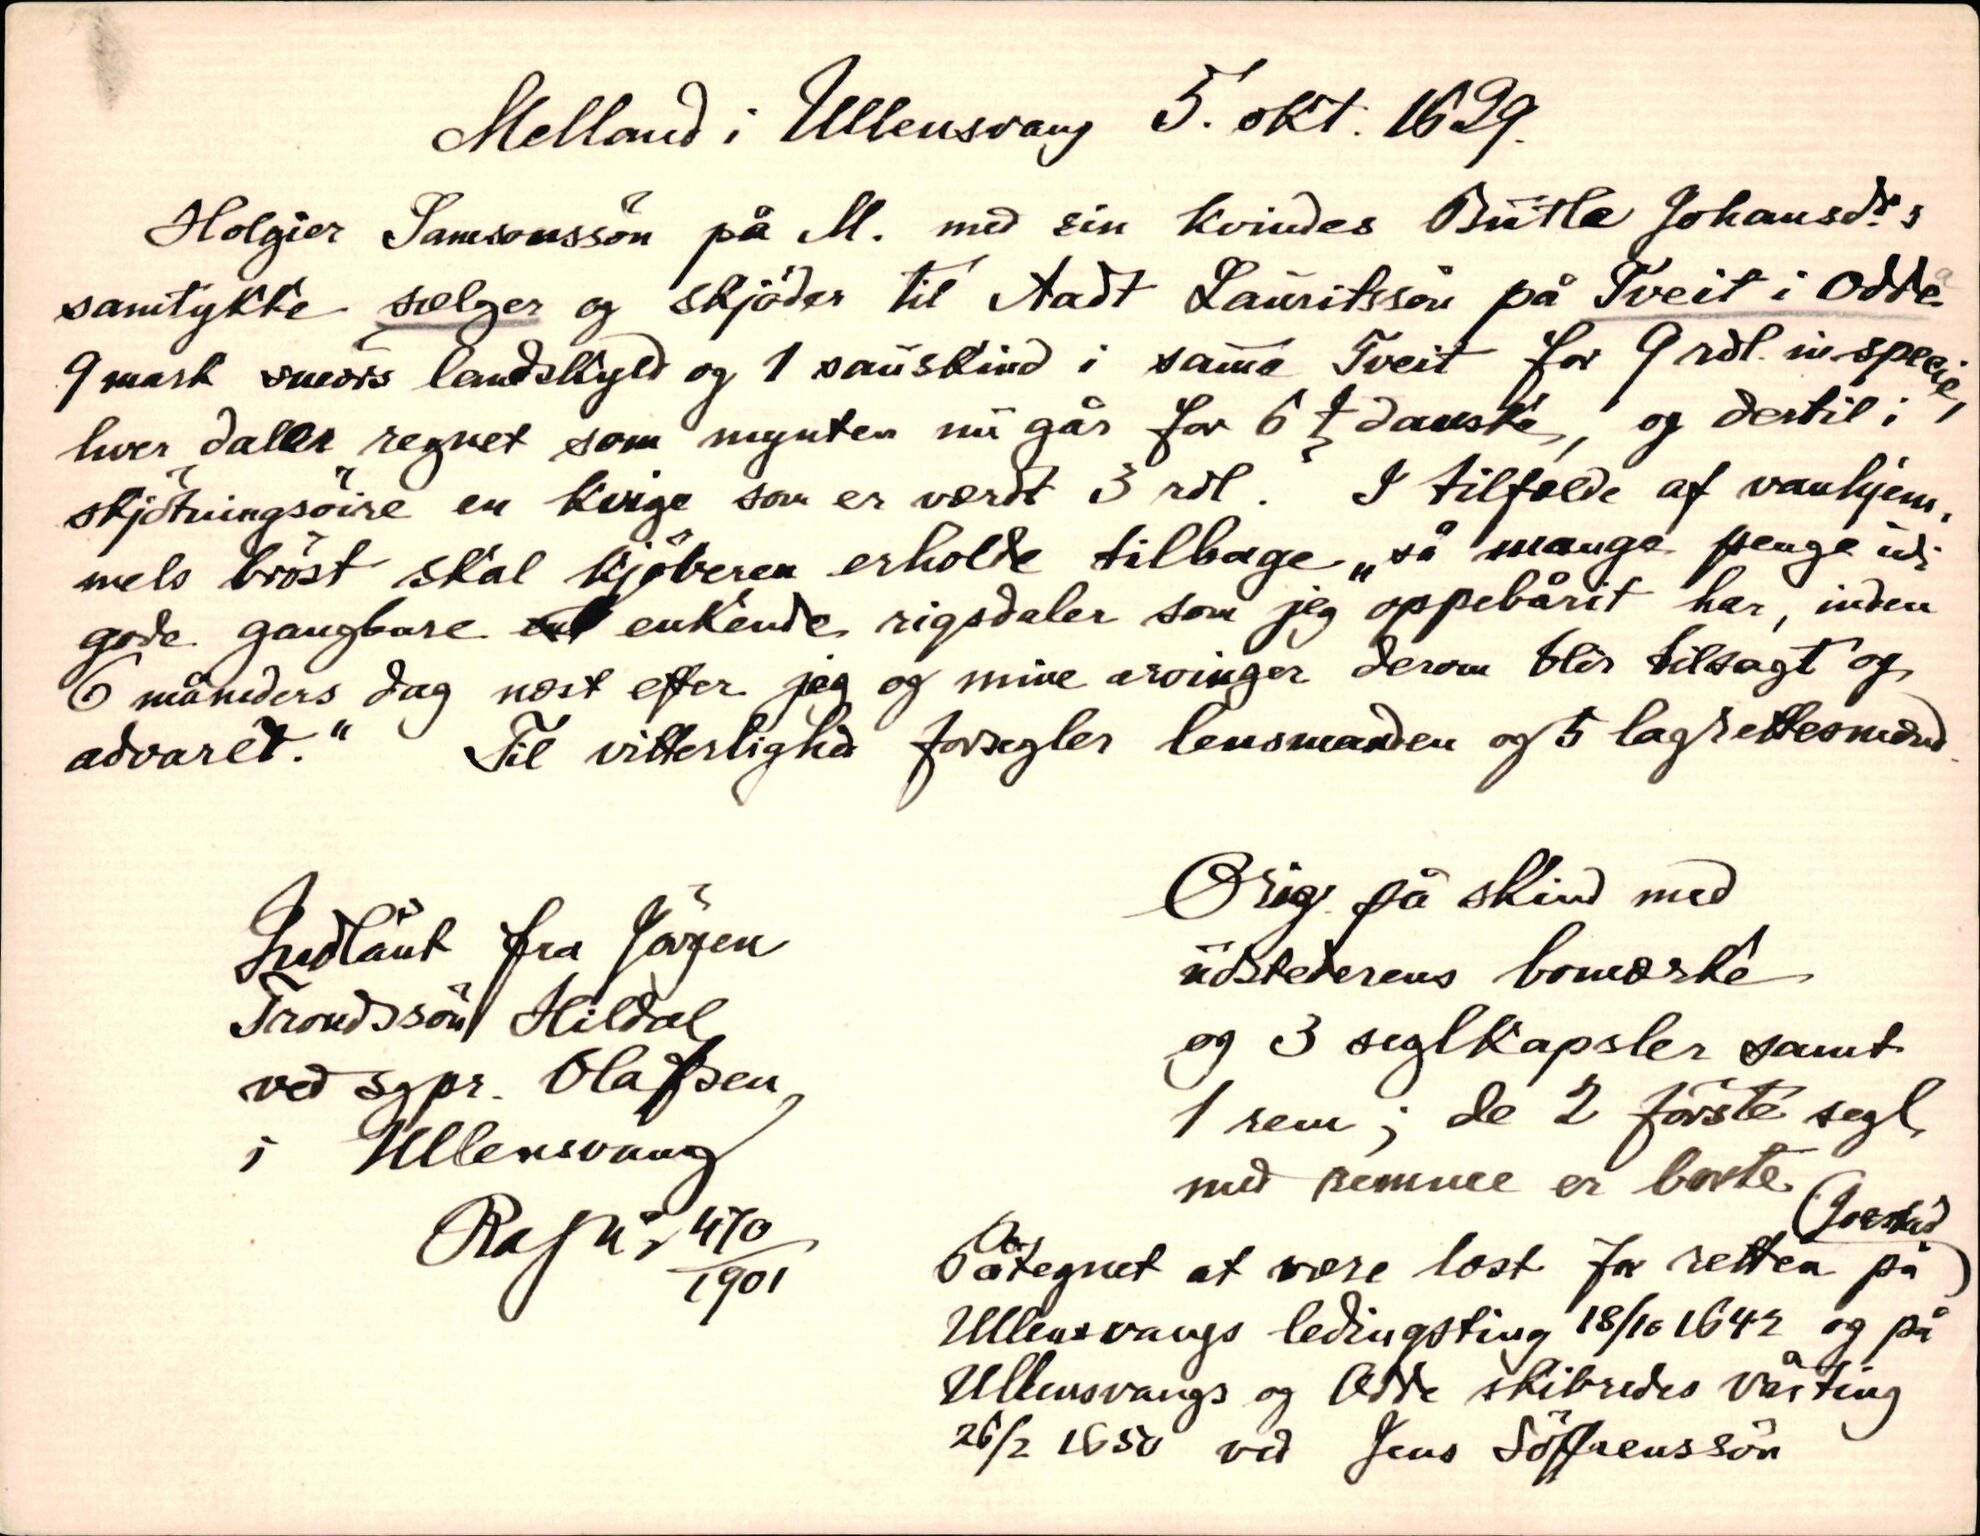 Melland i Ullensvang 5. okt. 1629.
Holgier Samsonssön på M. med sin kvindes Butle Johansdrs
samtykke sælger og skjöder til Aadt Lauritssön på Tveit i Odde
9 mark smörs landskyld og 1 sauskind i samme Tveit for 9 rdl. in specie,
hver daler regnet som mynten nu går for 6 ƒ danske, og dertil i
skjötningsöire en kvige som er værdt 3 rdl. I tilfælde af vanhjem-
mels bröst skal kjöberen erholde tilbage „så mange penge udi
gode gangbare enkende rigsdaler som jeg oppebårit har, inden
6 måneders dag næst efter jeg og mine arvinger derom blir tilsagt og
advaret.“ Til vitterlighed forsegler lensmanden og 5 lagrettesmænd.
Indlånt fra Jörgen
Trondssön Hildal
ved sgpr. Olafsen
i Ullensvang
470/1901
Orig. på skind med
udstederens bomærke
og 3 seglkapsler samt
1 rem; de 2 förste segl
med remme er borte.
Påtegnet at være læst for retten på
Ullensvangs ledingsting 18/10 1642 og på
Ullensvangs og Odde skibredes vårting
26/2 1650 ved Jens Söffrenssön